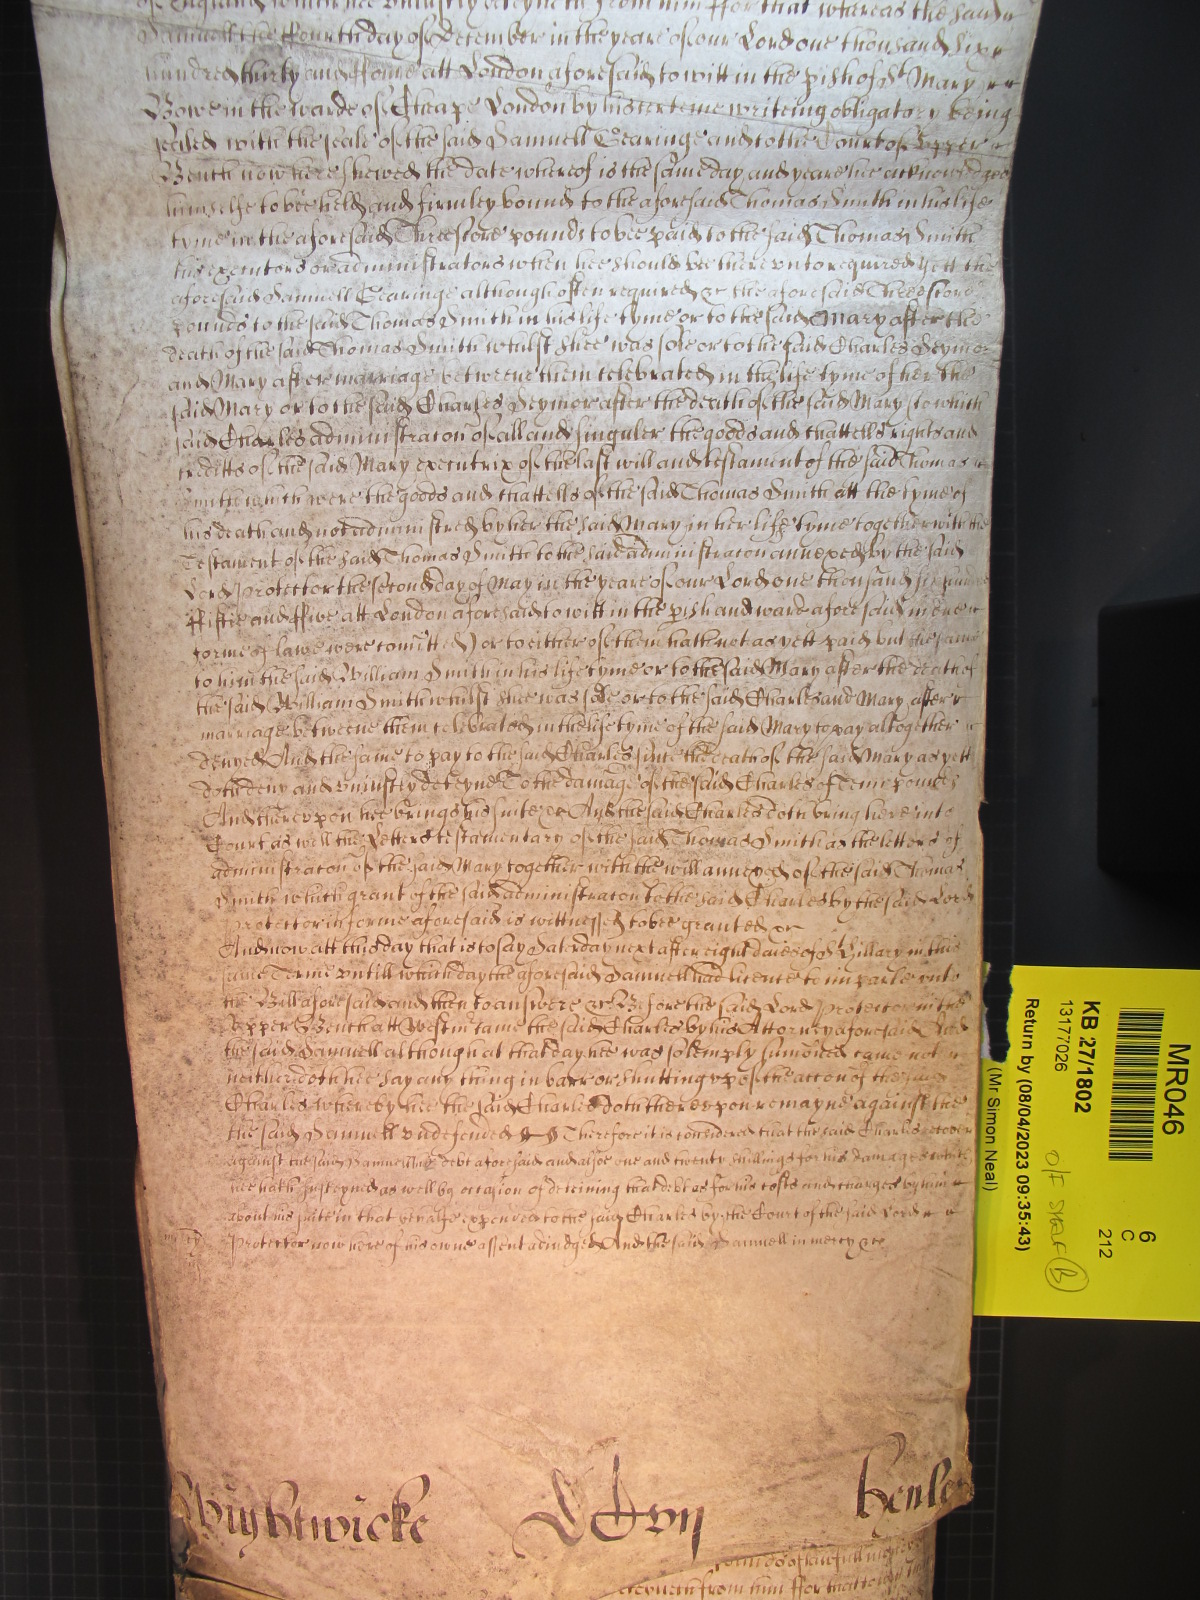 of England which hee uniustly deteyneth from him ffor that whereas the said
Samuell the ffourth day of december in the yeare of our Lord one thousand sixe
hundred thirty and ffowre att London aforesaid to witt in the pish of St Mary
Bowe in the warde of Cheape London by his certeine writeing obligatory being
sealed with the seale of the said Samuell Gearinge and to the Court of Upper
Bench now here shewed the date whereof is the same day and yeare hee acknowledged
himselfe to bee held and firmley bound to the aforesaid Thomas Smith in his life
tyme in the aforesaid Threescore pounds to bee paid to the said Thomas Smith
his executors or administrators when hee should bee thereunto required yett the
aforesaid Samuell Gearinge although often required &c the aforesaid Threescore
pounds to the said Thomas Smith in his life tyme or to the said Mary after the
death of the said Thomas Smith whilst shee was sole or to the said Charles Seymor
and Mary after marriage betweene them celebrated in the life tyme of her the
said Mary or to the said Charles Seymor after the death of the said Mary to which
said Charles administracon of all and singuler the goods and chattells rights and
creditts of the said Mary executrix of the last will and testament of the said Thomas
Smith which were the goods and chattells of the said Thomas Smith att the tyme of
his death and not administred by her the said Mary in her life tyme together with the
Testament of the said Thomas Smith to the said administracon annexed by the said
Lord Protector the second day of May in the yeare of our Lord one thousand six hundred
ffiftie and ffive att London aforesaid to witt in the pish and ward aforesaid in due
forme of lawe were comitted) or to either of them hath not as yett paid but the same
to him the said William Smith in his life tyme or to the said Mary after the death of
the said William Smith whilst shee was sole or to the said Charles and Mary after
marriage betweene them celebrated in the life tyme of the said Mary to pay altogether
denyed And the same to pay to the said Charles since the death of the said Mary as yett
doth deny and uniustly deteyne To the damage of the said Charles of Tenn pounds
And thereupon hee brings his suite &c And the said Charles doth bring here into
Court as well the Letters testamentary of the said Thomas Smith as the letters of
administracon of the said Mary together with the will annexed of the said Thomas
Smith which grant of the said administracon to the said Charles by the said Lord
Protector in forme aforesaid is wittnessed to bee granted &c
And now att this day that is to say Saturday next after eight daies of St Hillary in this
same Terme untill which day the aforesaid Samuell had licence to imparle unto
the Bill aforesaid and then to answere &c Before the said Lord Protector in the
Upper Bench att Westmr came the said Charles by his Attorney aforesaid And
the said Samuell although at that day hee was solemply sumoned came not
neither doth hee say any thing in barr or shutting upp of the accon of the said
Charles whereby hee the said Charles doth thereupon remayne against the
the said Samuell undefended Therefore it is considered that the said Charles recover
against the said Samuell his debt aforesaid and alsoe one and twenty shillings for his damages which
hee hath susteyned as well by occasion of deteining that debt as for his costs and charges by him
about his suite in that behalfe expended to the said Charles by the Court of the said Lord
Protector now here of his owne assent adiudged And the said Samuell in mercy &c
Wightwicke
London
Henley
pounds of lawfull money
deteyneth from him ffor that
MR046
KB 27/1802
13177026
Return by (08/04/2023 09:35:43)
(Mr Simon Neal)
6
C
212
O/F SHELF B